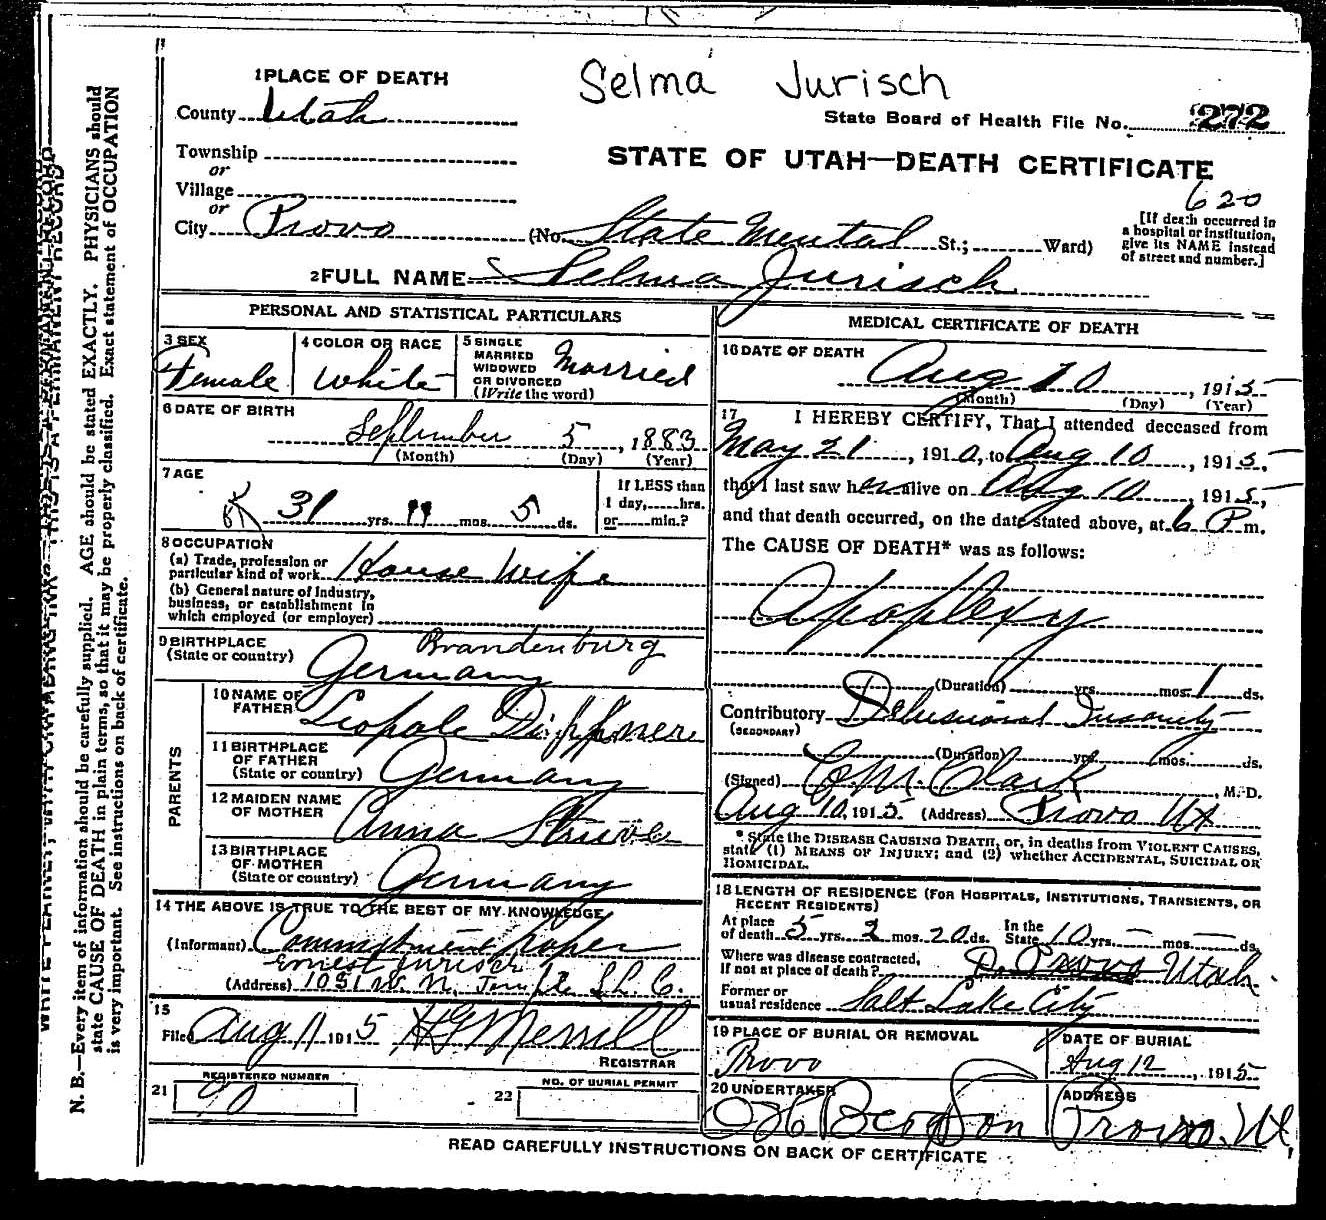 Selma Jurisch
1 PLACE OF DEATH
County Utah
State Board of Health File No. 272
Township
or
Village
or
City Provo
STATE OF UTAH—DEATH CERTIFICATE
620
(No. State Mental St.; Ward)
[If death occurred in
a hospital or institution,
give its NAME instead
of street and number.]
2 FULL NAME Selma Jurisch
PERSONAL AND STATISTICAL PARTICULARS
3 SEX
Female
4 COLOR OR RACE
White
5 SINGLE
MARRIED
WIDOWED
OR DIVORCED
(Write the word)
Married
6 DATE OF BIRTH
September 5, 1883
(Month) (Day) (Year)
7 AGE
31 yrs. 11 mos. 5 ds.
If LESS than
1 day, hrs.
or min.?
8 OCCUPATION
(a) Trade, profession or
particular kind of work House Wife
(b) General nature of Industry,
business, or establishment in
which employed (or employer)
9 BIRTHPLACE
(State or country)
Brandenburg
Germany
PARENTS
10 NAME OF
FATHER
11 BIRTHPLACE
OF FATHER
(State or country) Germany
12 MAIDEN NAME
OF MOTHER Anna Struve
13 BIRTHPLACE
OF MOTHER
(State or country) Germany
14 THE ABOVE IS TRUE TO THE BEST OF MY KNOWLEDGE
(Informant) Commitment Paper
Ernest Jurisch
(Address) 1031 W. N. Temple S.L.C.
15
Filed Aug 11 1915 H G Merrill
REGISTRAR
REGISTERED NUMBER
21 90
NO. OF BURIAL PERMIT
22
MEDICAL CERTIFICATE OF DEATH
16 DATE OF DEATH
Aug 10, 1915
(Month) (Day) (Year)
17 I HEREBY CERTIFY, That I attended deceased from
May 21, 1910, to Aug 10, 1915,
that I last saw her alive on Aug 10, 1915,
and that death occurred, on the date stated above, at 6 P m.
The CAUSE OF DEATH* was as follows:
Apoplexy
(Duration) yrs. mos. 1 ds.
Contributory Delusional Insanity
(SECONDARY)
(Duration) yrs. mos. ds.
(Signed) Clark, M.D.
Aug 10, 1915. (Address) Provo Ut
* State the DISEASE CAUSING DEATH, or, in deaths from VIOLENT CAUSES,
state (1) MEANS OF INJURY; and (2) whether ACCIDENTAL, SUICIDAL OR
HOMICIDAL.
18 LENGTH OF RESIDENCE (FOR HOSPITALS, INSTITUTIONS, TRANSIENTS, OR
RECENT RESIDENTS)
At place
of death 5 yrs. 2 mos. 20 ds. In the
State 10 yrs. — mos. — ds.
Where was disease contracted,
if not at place of death? Provo Utah.
Former or
usual residence Salt Lake City
19 PLACE OF BURIAL OR REMOVAL
Provo
DATE OF BURIAL
Aug 12, 1915
20 UNDERTAKER
ADDRESS
Provo. Ut,
READ CAREFULLY INSTRUCTIONS ON BACK OF CERTIFICATE
N. B.—Every item of information should be carefully supplied. AGE should be stated EXACTLY. PHYSICIANS should
state CAUSE OF DEATH in plain terms, so that it may be properly classified. Exact statement of OCCUPATION
is very important. See instructions on back of certificate.